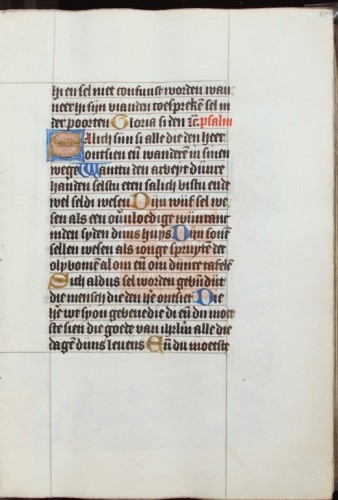 hi en sel niet confuust worden wan
neer hi sijn vianden toesprekē sel in
der poorten Gloria si den ic. psalm
Salich sijn si alle die den heer
ontsien eñ wanderē in sinen
wege Wanttu den arbeyt dijnre
handen selstu eten salich bistu ende
wel seldi wesen Dijn wijf sel we
sen als een ouuloedige wijnrant
inden syden dijns huys Dijn sonē
sellen wesen als ionge spruyten der
olybomē al om eñ om dijnre tafelē
Sich aldus sel worden gebñdijt
die mensch die den hē ontsiet Die
hē wt syon gebenedie di eñ du moe
ste sien die goede van ihrlm alle die
dagē dijns leuens Eñ du moetste